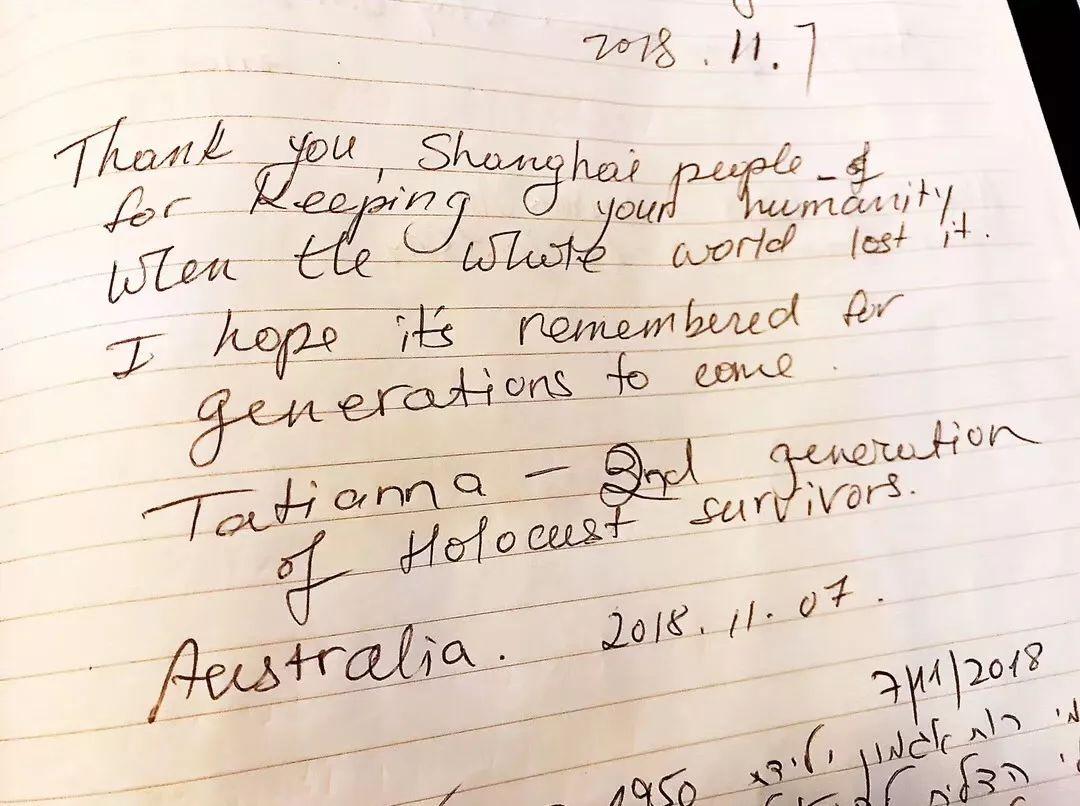 2018.11.7
Thank you, Shanghai people
for keeping your humanity
when the whole world lost it.
I hope it's remembered for
generations to come.
Tatianna - 2nd generation
of Holocust survivors.
Australia. 2018.11.07.
7/11/2018
1950